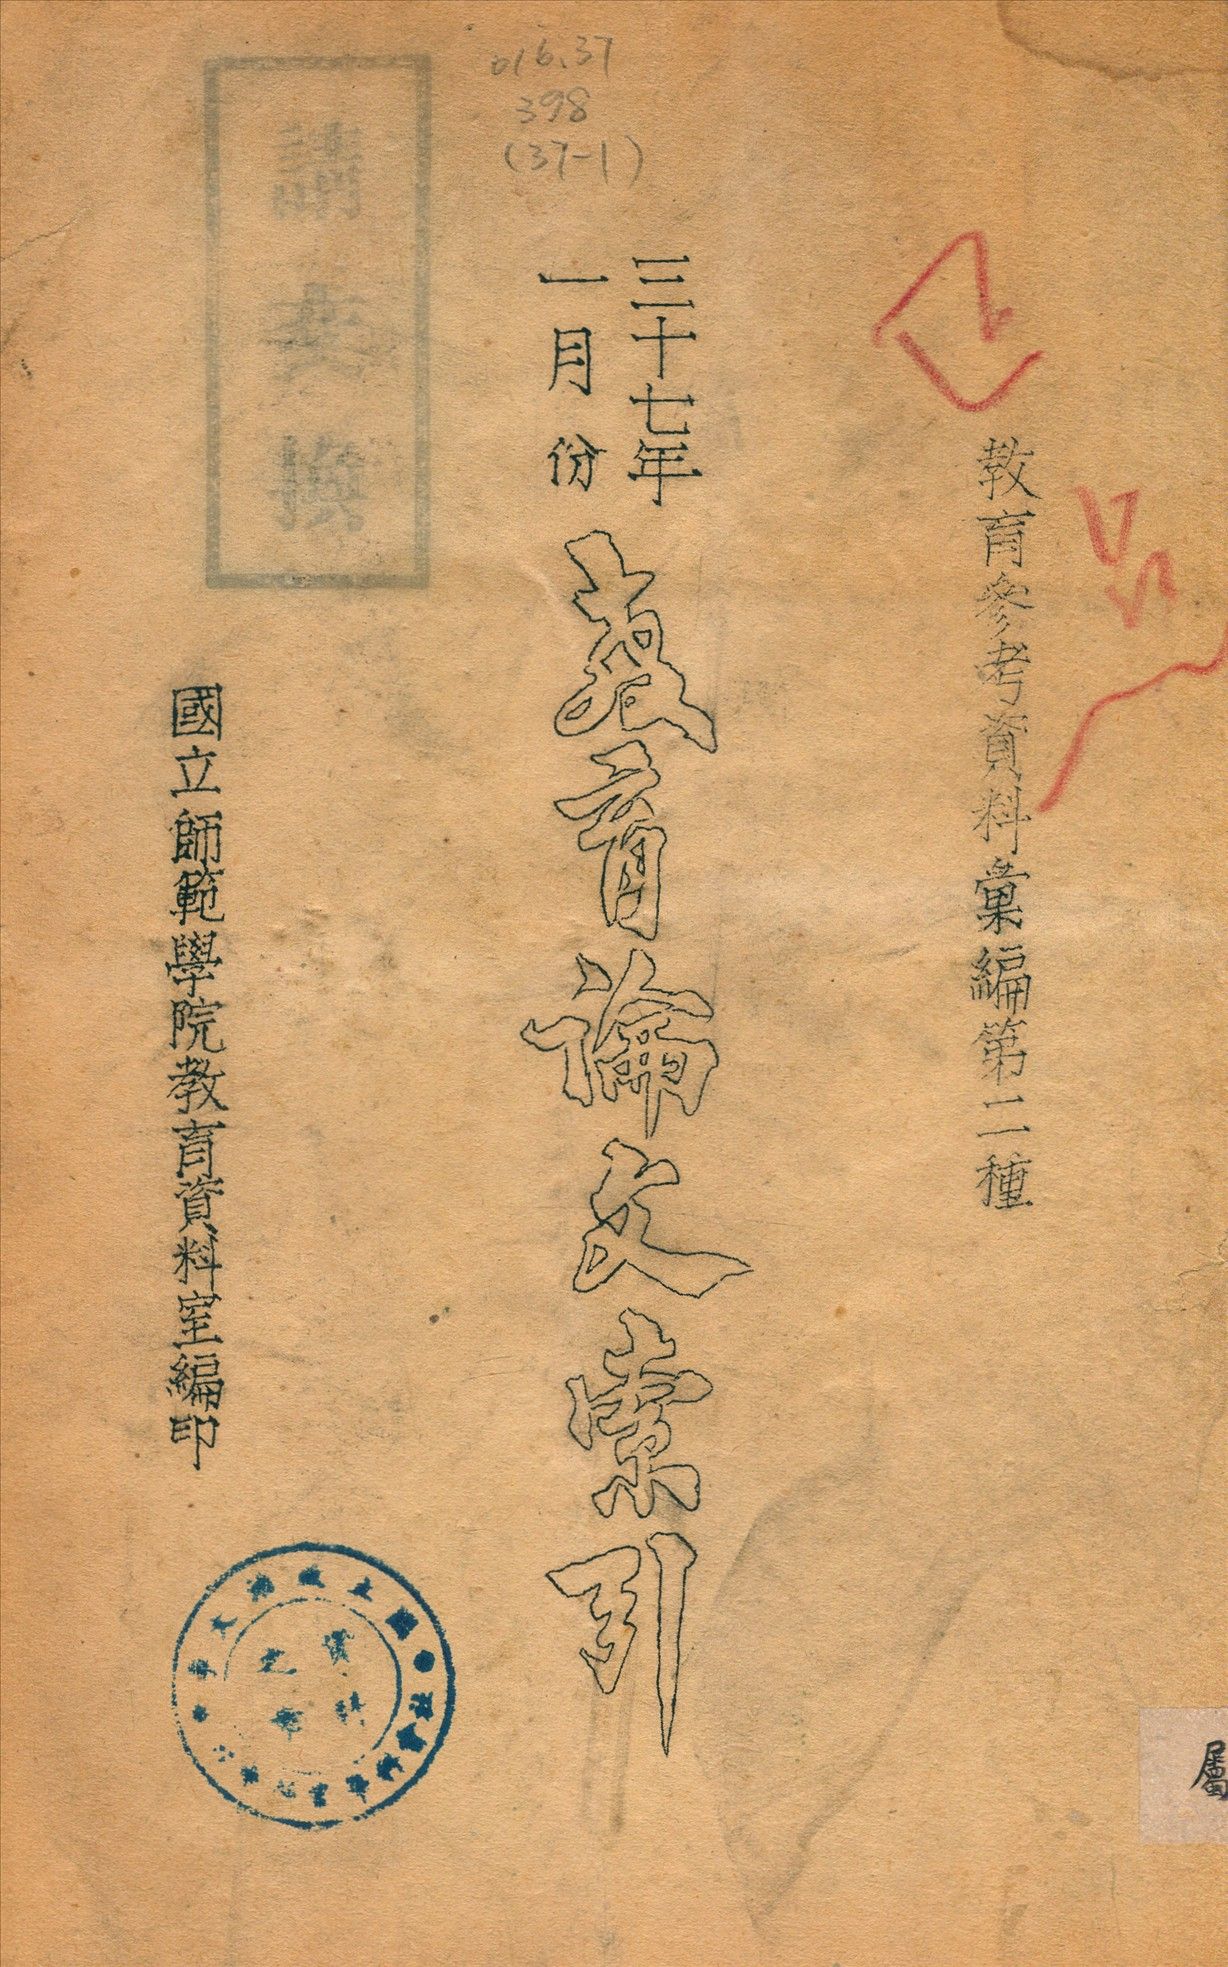 016.37
398
(37-1)
教育參考資料彙編第二種
三十七年
一月份
教育論文索引
國立師範學院教育資料室編印
請交換
屬